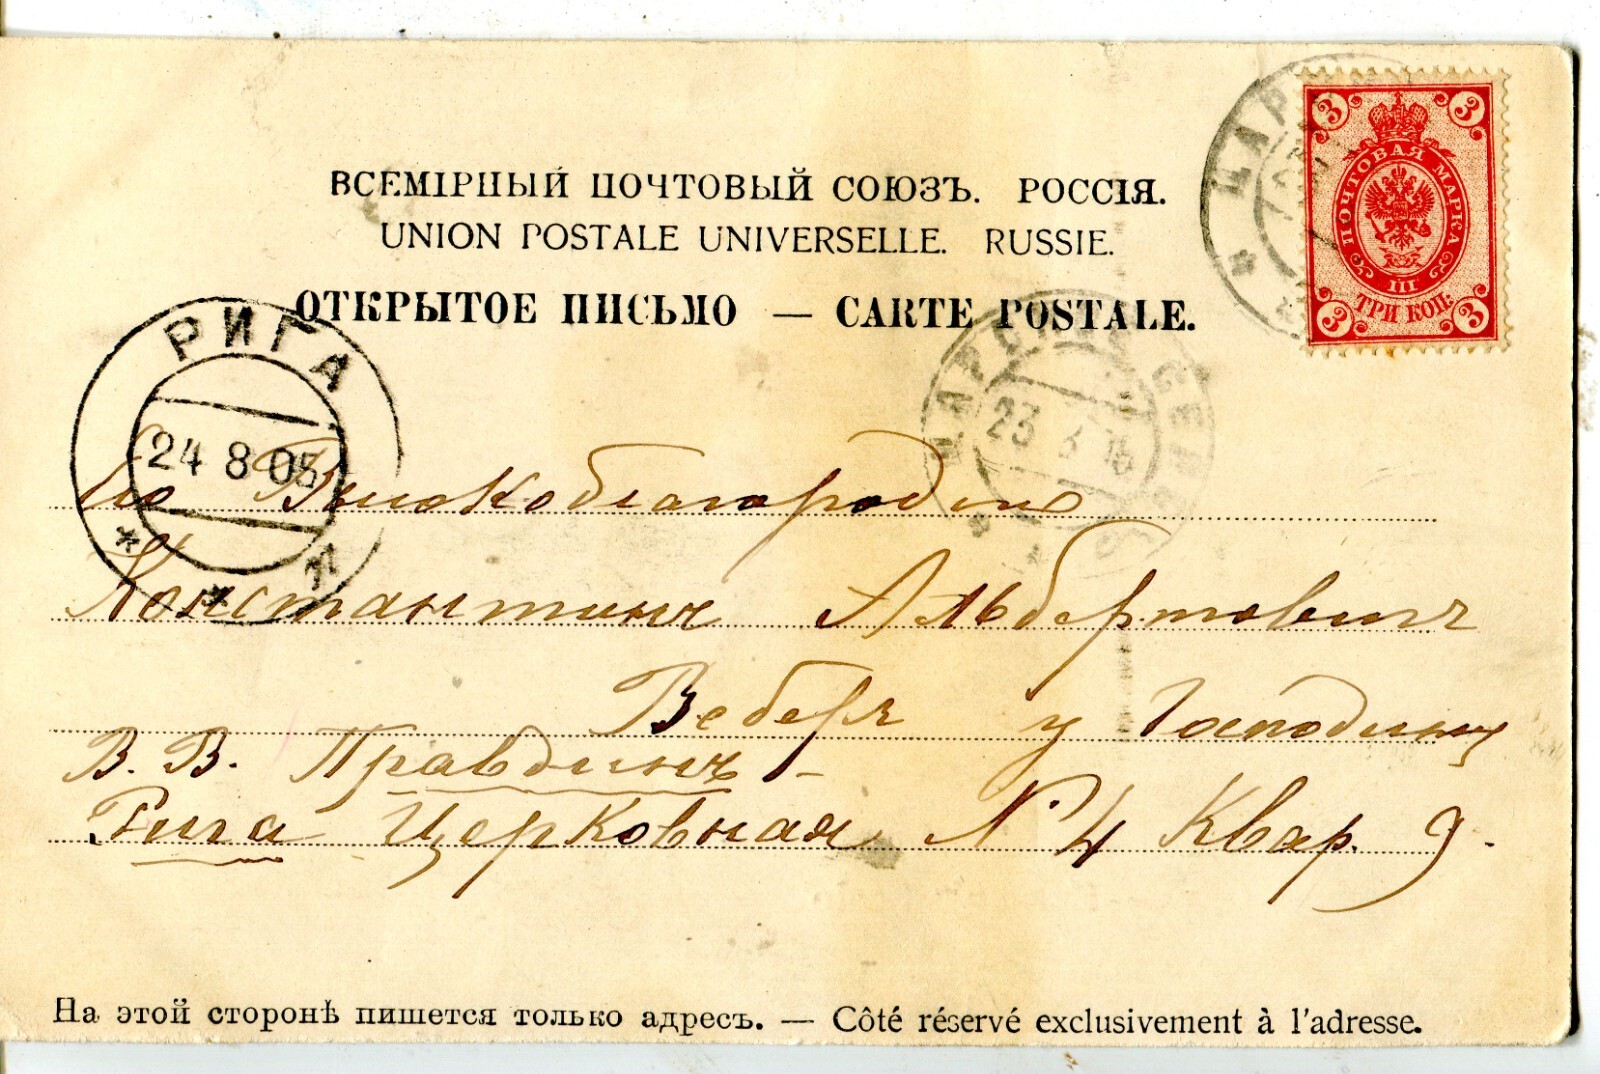 ВСЕМІРНЫЙ ПОЧТОВЫЙ СОЮЗЪ. РОССІЯ.
UNION POSTALE UNIVERSELLE. RUSSIE.
ОТКРЫТОЕ ПИСЬМО — CARTE POSTALE.
3 3
ПОЧТОВАЯ МАРКА
III
ТРИ КОП.
3 3
ЦАР
РИГА
24 8 05
ЦАРСК СЕЛ
23
Его Высокоблагородію
Константинъ Альбертовичъ
Веберъ у Господину
В. В. Правдинъ -
Рига Церковная № 4 Квар. 9.
На этой сторонѣ пишется только адресъ. — Côté réservé exclusivement à l'adresse.